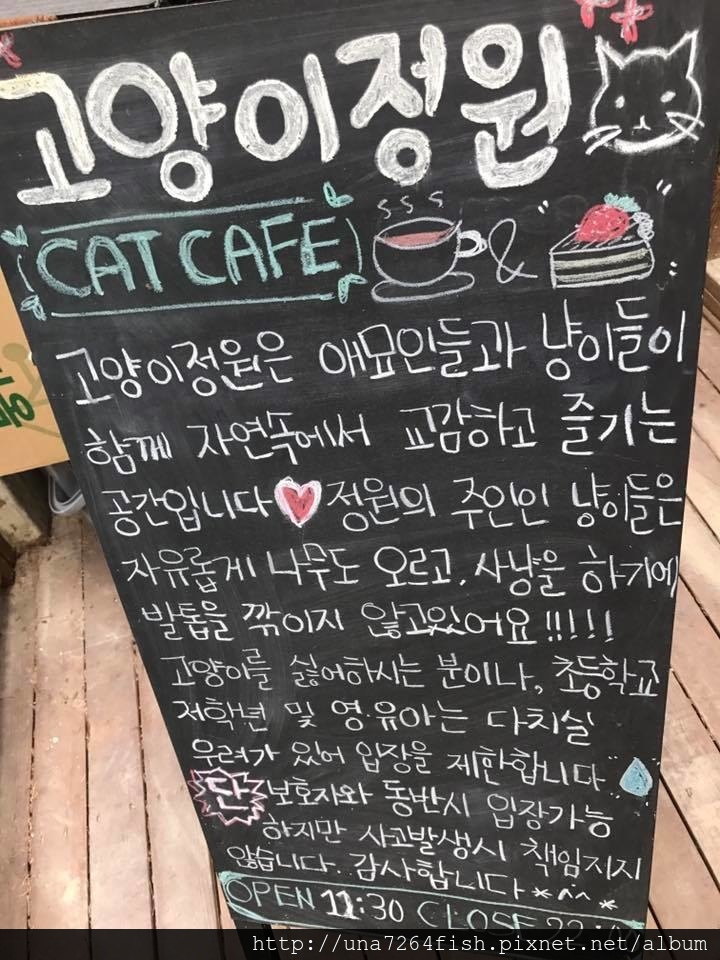 고양이정원
CAT CAFE &
고양이정원은 애묘인들과 냥이들이
함께 자연속에서 교감하고 즐기는
공간입니다 정원의 주인인 냥이들은
자유롭게 나무도 오르고, 사냥을 하기에
발톱을 깎이지 않고있어요!!!!!
고양이를 싫어하시는 분이나, 초등학교
저학년 및 영·유아는 다치실
우려가 있어 입장을 제한합니다.
단 보호자와 동반시 입장가능
하지만 사고발생시 책임지지
않습니다. 감사합니다 *^^*
OPEN 11:30 CLOSE
http://una7264fish.pixnet.net/album